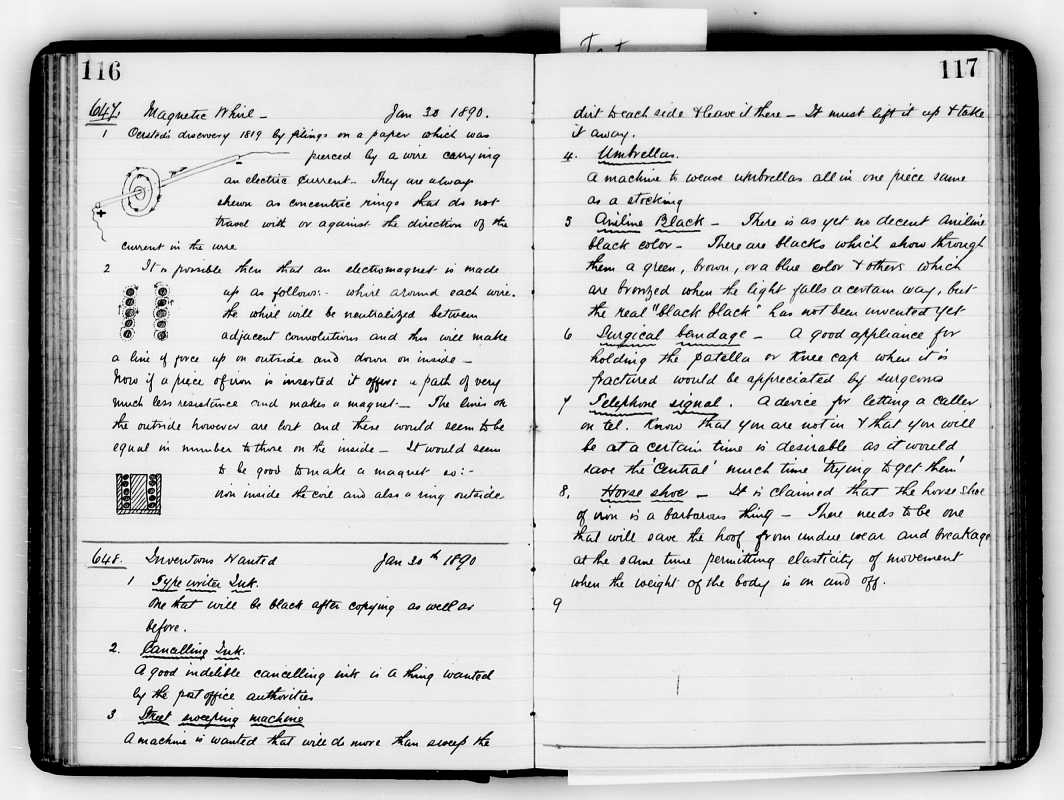 Tet
116
647. Magnetic Whirl – Jan 30 1890.
1 Oersted's discovery 1819 by filings on a paper which was
pierced by a wire carrying
an electric current – They are always
shewn as concentric rings that do not
travel with or against the direction of the
current in the wire
2 It is possible then that an electromagnet is made
up as follows:- whirl around each wire.
the whirl will be neutralized between
adjacent convolutions and this will make
a line of force up on outside and down on inside –
Now if a piece of iron is inserted it offers a path of very
much less resistance and makes a magnet – The lines on
the outside however are lost and these would seem to be
equal in number to those on the inside – It would seem
to be good to make a magnet as:-
iron inside the coil and also a ring outside
648. Inventions Wanted Jan 30th 1890
1 Type writer Ink.
One that will be black after copying as well as
before.
2. Cancelling Ink.
A good indelible cancelling ink is a thing wanted
by the post office authorities
3 Street sweeping machine
A machine is wanted that will do more than sweep the
117
dirt to each side & leave it there – It must lift it up & take
it away.
4. Umbrellas.
A machine to weave umbrellas all in one piece same
as a stocking
5 Aniline Black – There is as yet no decent aniline
black color – There are blacks which show through
them a green, brown, or a blue color & others which
are bronzed when the light falls a certain way, but
the real "black black" has not been invented yet
6 Surgical bandage – A good appliance for
holding the patella or knee cap when it is
fractured would be appreciated by surgeons
7 Telephone signal. A device for letting a caller
on tel. know that you are not in & that you will
be at a certain time is desirable as it would
save the 'central' much time 'trying to get them'
8. Horse shoe – It is claimed that the horse shoe
of iron is a barbarous thing – There needs to be one
that will save the hoof from undue wear and breakage
at the same time permitting elasticity of movement
when the weight of the body is on and off.
9